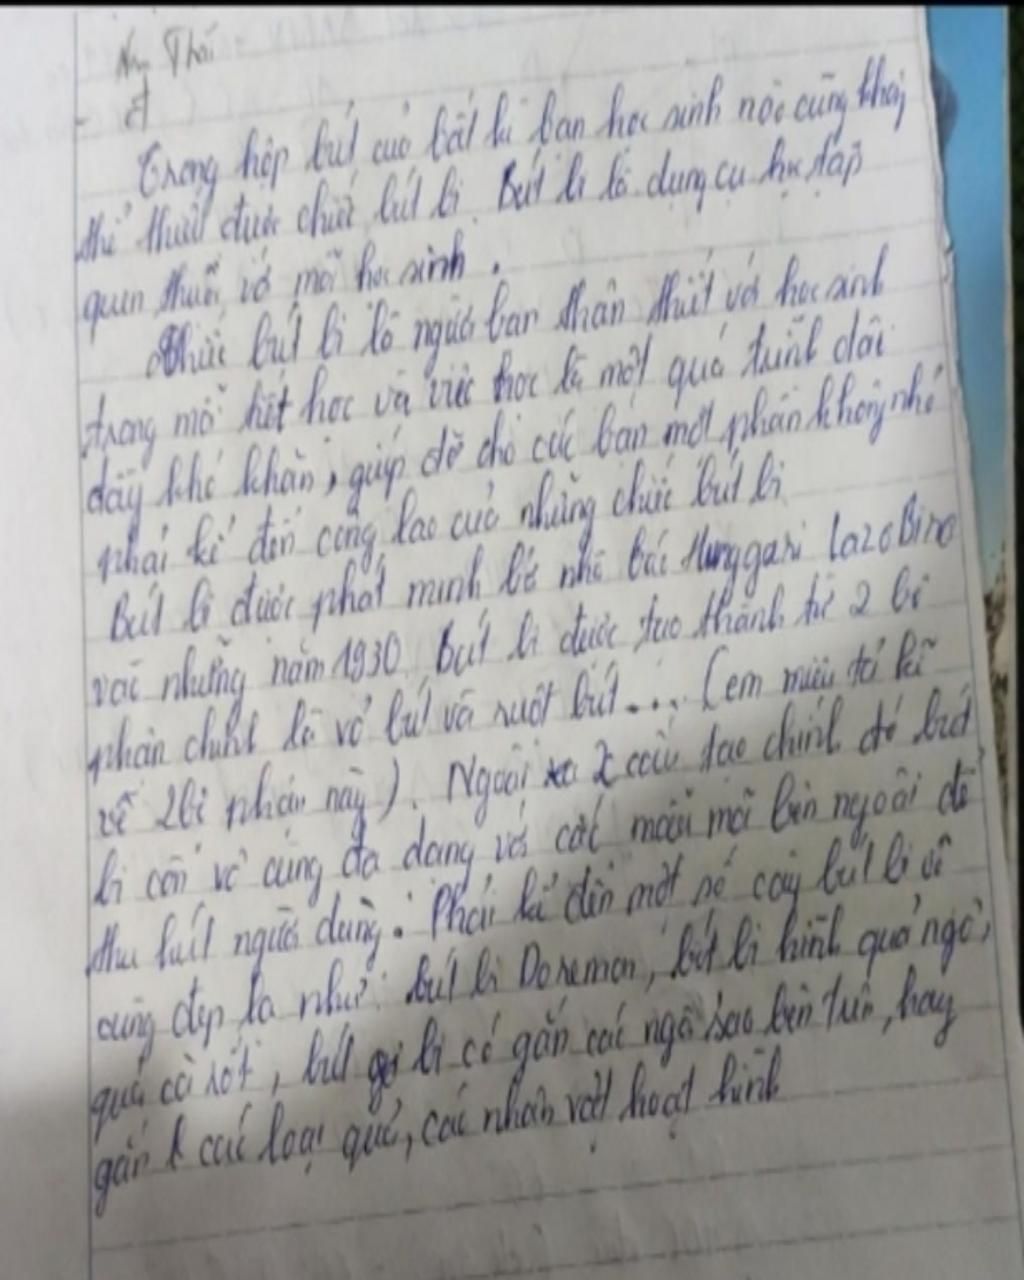 Trong hộp bút của bất kì bạn học sinh nào cũng không
thể thiếu được chiếc bút bi. Bút bi là dụng cụ học tập
quen thuộc với mỗi học sinh.
Chiếc bút bi là người bạn thân thiết với học sinh
trong mỗi tiết học và việc học là một quá trình dài
đầy khó khăn, giúp đỡ cho các bạn một phần không nhỏ
phải kể đến công lao của những chiếc bút bi
Bút bi được phát minh bởi nhà báo Hunggari Lazo Biro
vào những năm 1930. Bút bi được tạo thành từ 2 bộ
phận chính là vỏ bút và ruột bút.... (em miêu tả kĩ
về 2 bộ phận này). Ngoài ra 2 cấu tạo chính đó bút
bi còn vô cùng đa dạng với các mẫu mã bên ngoài để
thu hút người dùng. Phải kể đến một số cây bút bi vô
cùng đẹp là như: bút bi Doremon, bút bi hình quả ngô,
quả cà rốt, bút bi có gắn các ngôi sao bên trên, hay
gắn các loại quả, các nhân vật hoạt hình